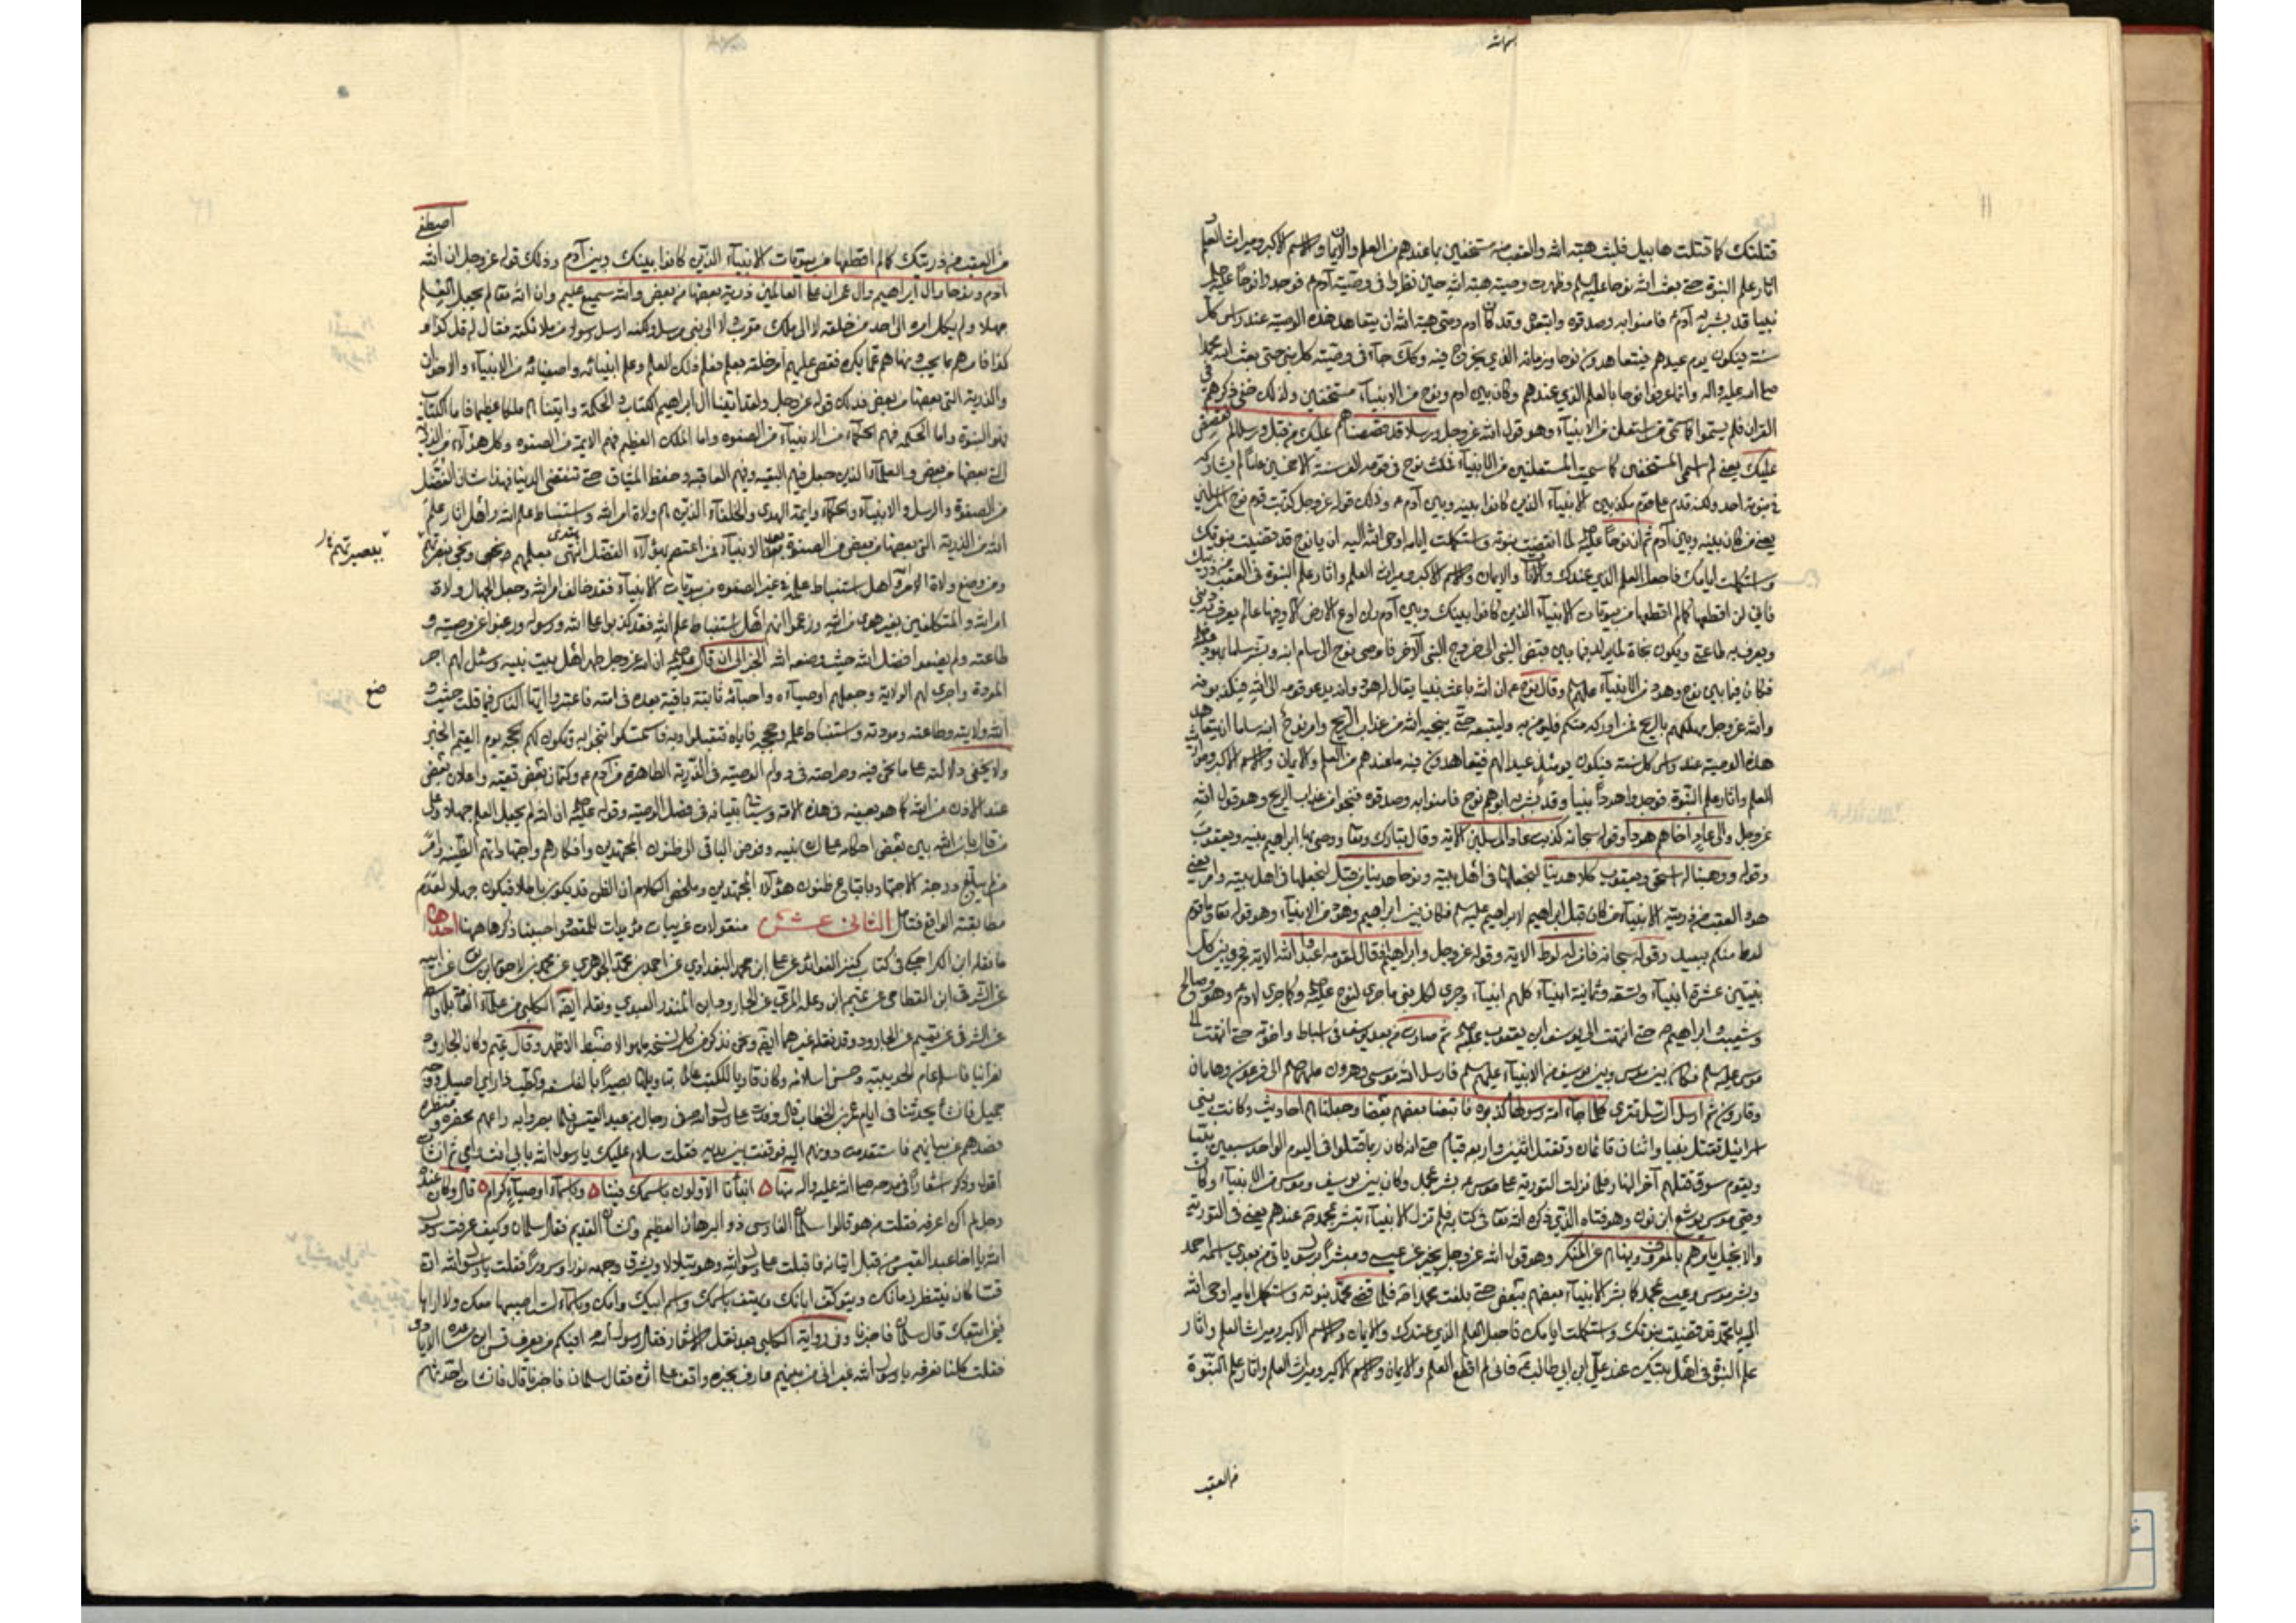 بسم الله
١١
قتلتك كما قتلت هابيل فلبث هبة الله والعقب منه مستخفين بما عندهم من العلم والايمان والاسم الاكبر وميراث العلم و
اثار علم النبوة حتى بعث الله نوحا عليه السلم وظهرت وصية هبة الله حين نظروا في وصية آدم ع فوجدوا نوحا عليه السلم
نبيا قد بشر به آدم ع فامنوا به وصدقوه واتبعوه وقد كان ادم وصى هبة الله ان يتعاهد هذه الوصية عند راس كل
سنة فيكون يوم عيدهم فيتعاهدون نوحا وزمانه الذي يخرج فيه وكذلك جآء في وصية كل نبي حتى بعث الله محمدا
صلى الله عليه واله وانما عرفوا نوحا بالعلم الذي عندهم وكان بين ادم ونوح من الانبيآء مستخفين ولذلك خفي ذكرهم في
القران فلم يسموا كما سمي من استعلن من الانبيآء وهو قول الله عز وجل ورسلا قد قصصناهم عليك من قبل ورسلا لم نقصصهم
عليك يعني لم اسمي المستخفين كما سميت المستعلنين من الانبيآء فمكث نوح في قومه الف سنة الا خمسين عاما لم يشاركه
في نبوته احد ولكنه قدم على قوم مكذبين للانبيآء الذين كانوا بينه وبين آدم ع وذلك قوله عز وجل كذبت قوم نوح المرسلين
يعني من كان بينه وبين آدم ثم ان نوحا عليه السلم لما انقضت نبوته واستكملت ايامه اوحى الله اليه ان يا نوح قد قضيت نبوتك
واستكملت ايامك فاجعل العلم الذي عندك والايمان والاسم الاكبر وميراث العلم واثار علم النبوة في العقب من ذريتك
فاني لن اقطعها كما لم اقطعها من بيوتات الانبيآء الذين كانوا بينك وبين آدم ولن ادع الارض الا وفيها عالم يعرف به ديني
ويعرف به طاعتي ويكون نجاة لمن يولد فيما بين قبض النبي الى خروج النبي الآخر فاوصى نوح الى سام ابنه وبشر ساما بهود
فكان فيما بين نوح وهود من الانبيآء عليهم السلم وقال نوح ان الله باعث نبيا يقال له هود وانه يدعو قومه الى الله فيكذبونه
والله عز وجل مهلكهم بالريح فمن ادركه منكم فليؤمن به وليتبعه حتى ينجيه الله من عذاب الريح وامر نوح ابنه ساما ان يتعاهد
هذه الوصية عند راس كل سنة فيكون يومئذ عيدا لهم فيتعاهدون فيه ما عندهم من العلم والايمان والاسم الاكبر ومواريث
العلم واثار علم النبوة فوجدوا هودا نبيا وقد بشر به ابوهم نوح فامنوا به وصدقوه فنجوا من عذاب الريح وهو قول الله
عز وجل والى عاد اخاهم هودا وقوله سبحانه كذبت عاد المرسلين الاية وقال تبارك وتعا ووصى بها ابراهيم بنيه ويعقوب
وقوله ووهبنا له اسحق ويعقوب كلا هدينا لنجعلها في اهل بيته ونوحا هدينا من قبل لنجعلها في اهل بيته
هود العقب من ذرية الانبيآء من كان قبل ابراهيم لابراهيم عليه السلم فكان بين ابراهيم وهود من الانبيآء وهو قوله تعا وما قوم
لوط منكم ببعيد وقوله سبحانه فامن له لوط الاية وقوله عز وجل وابراهيم اذ قال لقومه اعبدوا الله الاية فجرى بين كل
نبيين عشرة انبيآء وتسعة وثمانية انبيآء كلهم انبيآء وجرى لكل نبي ما جرى لنوح عليه السلم وكما جرى لادم ع وهود وصالح
وشعيب وابراهيم حتى انتهت الى يوسف ابن يعقوب عليه السلم ثم صارت من بعد يوسف في اسباط واخوته حتى انتهت الى
موسى عليه السلم فكان بين موسى وبين يوسف من الانبيآء عليهم السلم فارسل الله موسى وهرون عليهما السلم الى فرعون وهامان
وقارون ثم ارسل الرسل تترى كلما جآء امة رسولها كذبوه فاتبعنا بعضهم بعضا وجعلناهم احاديث وكانت بني
اسرائيل تقتل نبيا واثنان قائمان وتقتل اثنين واربعة قيام حتى انه كان ربما قتلوا في اليوم الواحد سبعين نبيا
ويقوم سوق قتلهم آخر النهار فلما نزلت التورية على موسى ع بشر بمحمد وكان بين يوسف وموسى من الانبيآء وكان
وصي موسى يوشع ابن نون وهو فتاه الذي ذكره الله تعا في كتابه فلم تزل الانبيآء تبشر بمحمد عندهم يعني في التورية
والانجيل يامرهم بالمعروف وينهاهم عن المنكر وهو قول الله عز وجل يخبر عن عيسى ومبشرا برسول ياتي من بعدي اسمه احمد
وبشر موسى وعيسى بمحمد كما بشر الانبيآء بعضهم ببعض حتى بلغت محمدا فلما قضى محمد نبوته واستكمل ايامه اوحى الله
اليه يا محمد قد قضيت نبوتك واستكملت ايامك فاجعل العلم الذي عندك والايمان والاسم الاكبر وميراث العلم واثار
علم النبوة في اهل بيتك عند علي ابن ابي طالب فاني لم اقطع العلم والايمان والاسم الاكبر وميراث العلم واثار علم النبوة
من العقب
اصطفى
من العقب من ذريتك كما لم اقطعها من بيوتات الانبيآء الذين كانوا بينك وبين آدم وذلك قوله عز وجل ان الله
ادم ونوحا وال ابراهيم وال عمران على العالمين ذرية بعضها من بعض والله سميع عليم وان الله تعا لم يجعل العلم
جهلا ولم يكل امره الى احد من خلقه لا الى ملك مقرب ولا الى نبي مرسل ولكنه ارسل رسولا من ملائكته فقال له قل كذا و
كذا فامرهم بما يحب ونهاهم عما يكره فقص عليهم امر خلقه بعلم فعلم ذلك العلم وعلم انبيائه واصفيائه من الانبيآء والاخوان
والذرية التي بعضها من بعض فذلك قوله عز وجل ولقد آتينا ال ابراهيم الكتاب والحكمة واتيناهم ملكا عظيما فاما الكتاب
فهو النبوة واما الحكمة فهم الحكمآء من الانبيآء من الصفوة واما الملك العظيم فهم الايمة من الصفوة وكل هؤلآء من الذرية
التي بعضها من بعض والعلمآء الذين جعل فيهم البقية وفيهم العاقبة وحفظ الميثاق حتى تنقضي الدنيا فهذا شان الفضل
من الصفوة والرسل والانبيآء والحكمآء وايمة الهدى والخلفآء الذين هم ولاة امر الله واستنباط علم الله واهل اثار علم
الله من الذرية التي بعضها من بعض من الصفوة بعد الانبيآء فمن اعتصم بهؤلآء الفضل انتهى بعلمهم ونجى بنصرتهم
ومن وضع ولاة الامر اهل استنباط علمه في غير الصفوة من بيوتات الانبيآء فقد خالف امر الله وجعل الجهال ولاة
امر الله والمتكلفين بغير هدى من الله وزعموا انهم اهل استنباط علم الله فقد كذبوا على الله ورسوله ورغبوا عن وصيته و
طاعته ولم يضعوا فضل الله حيث وضعه الله الخبر الى ان قال عليه السلم ان الله عز وجل طهر اهل بيت نبيه وسئل لهم اجر
المودة واجرى لهم الولاية وجعلهم اوصيآءه واحبآئه ثابتة باقية بعده في امته فاعتبروا ايها الناس فيما قلت حيث و
صنع
الله ولايته وطاعته ومودته واستنباط علمه وحججه فاياه فتقبلوا وبه فاستمسكوا تنجوا به وتكون لكم الحجة يوم القيمة الخبر
ولا يخفى دلالته على ما نحن فيه وصراحته في دوام الوصية في الذرية الطاهرة من آدم ع وكتمان بعض بقية واعلان بعض
عند الاذن من الله كما هو بعينه في هذه الامة وسيأتي بيانه في فصل الوصية وقوله عليه السلم ان الله لم يجعل العلم جهلا رد على
من قال بان الله بين بعض احكامه على لسان نبيه وفوض الباقي الى ظنون المجتهدين وافكارهم واجتهاداتهم الظنية وامر
من لم يبلغ درجة الاجتهاد باتباع ظنون هؤلآء المجتهدين وملخص الكلام ان الظن قد يكون باطلا فيكون جهلا لعدم
مطابقته الواقع فتامل الثاني عشر منقولات غريبات مؤيدات للمقصود احببنا ذكرها ههنا احدها
ما نقله ابن الكراجكي في كتاب كنز الفوائد عن علي ابن محمد البغدادي عن احمد بن محمد الجوهري عن محمد بن لاحق ابن سابق عن ابيه
عن الشرقي ابن القطامي عن تميم ابن وعلة المري عن الجارود ابن المنذر العبدي ونقله ايضا الكلبي من علمآء العامة
عن الشرقي عن تميم عن الجارود وقد نقله غيرهما ايضا ونحن نذكر من كل نسخة ما هو الاضبط الاظهر وقال تميم وكان الجارود
نصرانيا فاسلم عام الحديبية وحسن اسلامه وكان قاريا للكتب عالما بتاويلها بصيرا بالفلسفة والطب ذا راي اصيل ووجه
جميل فانشأ يحدثنا في ايام عمر بن الخطاب قال وفدت على رسول الله ص في رجال من عبد القيس فلما بصروا به راعهم منظره ومحضره
فصدهم عن بيانهم فاستقدمت دونهم اليه فوقفت بين يديه فقلت سلام عليك يا رسول الله بابي انت وامي ثم انشأت
اقول وذكر اشعارا في مدحه صلى الله عليه واله منها ٥ انبأنا الاولون باسمك فينا ٥ وباسمآء اوصيآء كرام ٥ قال وكان عنده
رجل لم اكن اعرفه فقلت من هو قالوا سلمان الفارسي ذو البرهان العظيم والشان القديم فقال سلمان وكيف عرفت رسول
الله يا اخا عبد القيس من قبل اتيانه فاقبلت على رسول الله وهو يتلألأ ويشرق وجهه نورا وسرورا فقلت يا رسول الله ان
قسا كان ينتظر زمانك ويتوكف ابانك ويهتف باسمك واسم ابيك وامك وباسمآء لست اصيبها معك ولا اراها
فيمن اتبعك قال سلمان فاخبرنا وفي رواية الكلبي بعد نقل الاشعار فقال رسول الله افيكم من يعرف قس ابن ساعدة الايادي
فقلت كلنا نعرفه يا رسول الله غير اني من بينهم عارف بخبره واقف على اثره فقال سلمان فاخبرنا قال فانشأت احدثهم